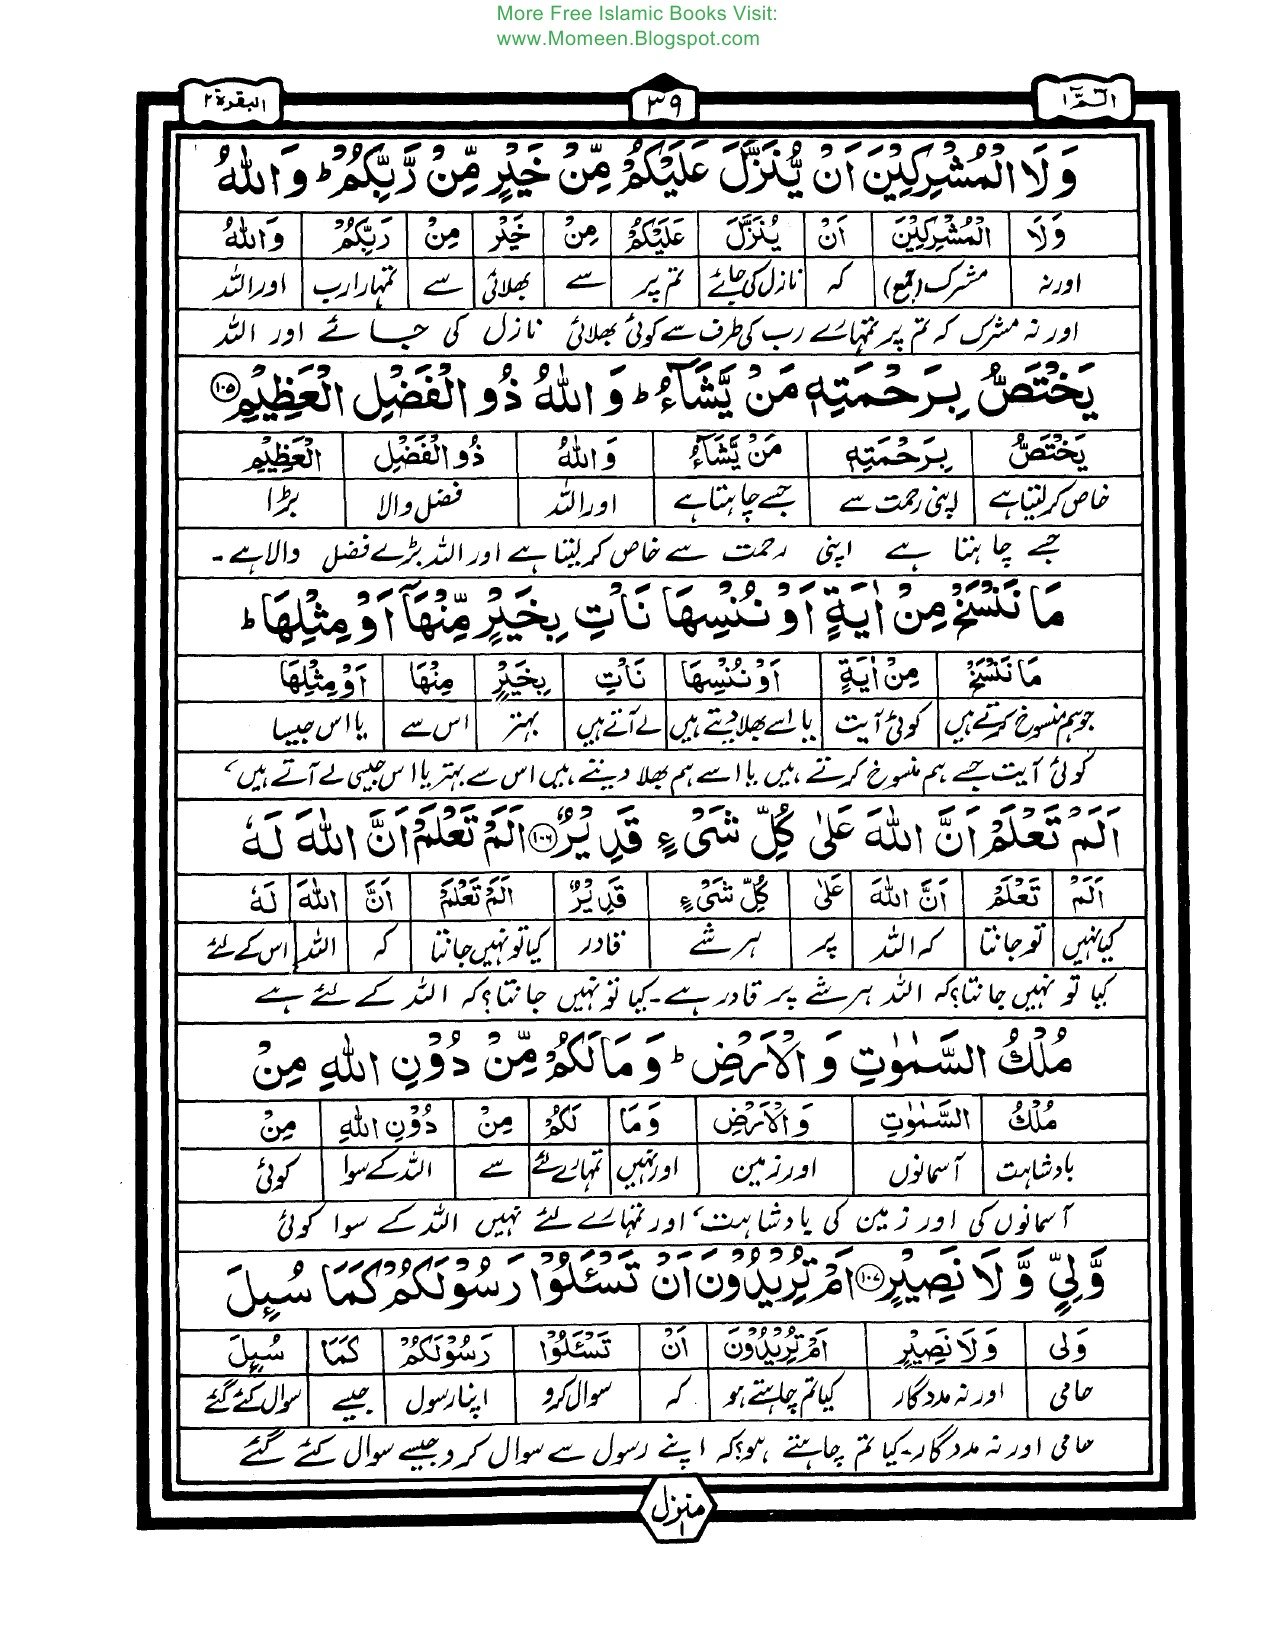 More Free Islamic Books Visit:
www.Momeen.Blogspot.com
الٓمّٓ ۱ ۳۹ البقرة ۲
وَلَا الْمُشْرِكِيْنَ اَنْ يُّنَزَّلَ عَلَيْكُمْ مِّنْ خَيْرٍ مِّنْ رَّبِّكُمْ ؕ وَاللّٰهُ
وَلَا الْمُشْرِكِيْنَ اَنْ يُنَزَّلَ عَلَيْكُمْ مِنْ خَيْرٍ مِنْ رَبِّكُمْ وَاللّٰهُ
اور نہ مشرک (جمع) کہ نازل کی جائے تم پر سے بھلائی سے تمہارا رب اور اللہ
اور نہ مشرک کہ تم پر تمہارے رب کی طرف سے کوئی بھلائی نازل کی جائے اور اللہ
يَخْتَصُّ بِرَحْمَتِهٖ مَنْ يَّشَآءُ ؕ وَاللّٰهُ ذُو الْفَضْلِ الْعَظِيْمِ ۱۰۵
يَخْتَصُّ بِرَحْمَتِهٖ مَنْ يَّشَآءُ وَاللّٰهُ ذُو الْفَضْلِ الْعَظِيْمِ
خاص کر لیتا ہے اپنی رحمت سے جسے چاہتا ہے اور اللہ فضل والا بڑا
جسے چاہتا ہے اپنی رحمت سے خاص کر لیتا ہے اور اللہ بڑے فضل والا ہے۔
مَا نَنْسَخْ مِنْ اٰيَةٍ اَوْ نُنْسِهَا نَاْتِ بِخَيْرٍ مِّنْهَاۤ اَوْ مِثْلِهَا ؕ
مَا نَنْسَخْ مِنْ اٰيَةٍ اَوْ نُنْسِهَا نَاْتِ بِخَيْرٍ مِنْهَا اَوْ مِثْلِهَا
جو ہم منسوخ کرتے ہیں کوئی آیت یا اسے بھلا دیتے ہیں لے آتے ہیں بہتر اس سے یا اس جیسا
کوئی آیت جسے ہم منسوخ کرتے ہیں یا اسے ہم بھلا دیتے ہیں اس سے بہتر یا اس جیسی لے آتے ہیں،
اَلَمْ تَعْلَمْ اَنَّ اللّٰهَ عَلٰى كُلِّ شَیْءٍ قَدِيْرٌ ۱۰۶ اَلَمْ تَعْلَمْ اَنَّ اللّٰهَ لَهٗ
اَلَمْ تَعْلَمْ اَنَّ اللّٰهَ عَلٰى كُلِّ شَیْءٍ قَدِيْرٌ اَلَمْ تَعْلَمْ اَنَّ اللّٰهَ لَهٗ
کیا نہیں تو جانتا کہ اللہ پر ہر شے قادر کیا تو نہیں جانتا کہ اللہ اس کے لئے
کیا تو نہیں جانتا؟ کہ اللہ ہر شے پر قادر ہے۔ کیا تو نہیں جانتا؟ کہ اللہ کے لئے ہے
مُلْكُ السَّمٰوٰتِ وَ الْاَرْضِ ؕ وَمَا لَكُمْ مِّنْ دُوْنِ اللّٰهِ مِنْ
مُلْكُ السَّمٰوٰتِ وَ الْاَرْضِ وَمَا لَكُمْ مِنْ دُوْنِ اللّٰهِ مِنْ
بادشاہت آسمانوں اور زمین اور نہیں تمہارے لئے سے اللہ کے سوا کوئی
آسمانوں کی اور زمین کی بادشاہت، اور تمہارے لئے نہیں اللہ کے سوا کوئی
وَّلِيٍّ وَّلَا نَصِيْرٍ ۱۰۷ اَمْ تُرِيْدُوْنَ اَنْ تَسْئَلُوْا رَسُوْلَكُمْ كَمَا سُئِلَ
وَلِی وَلَا نَصِيْرٍ اَمْ تُرِيْدُوْنَ اَنْ تَسْئَلُوْا رَسُوْلَكُمْ كَمَا سُئِلَ
حامی اور نہ مددگار کیا تم چاہتے ہو کہ سوال کرو اپنا رسول جیسے سوال کئے گئے
حامی اور نہ مددگار۔ کیا تم چاہتے ہو؟ کہ اپنے رسول سے سوال کرو جیسے سوال کئے گئے
منزل ۱